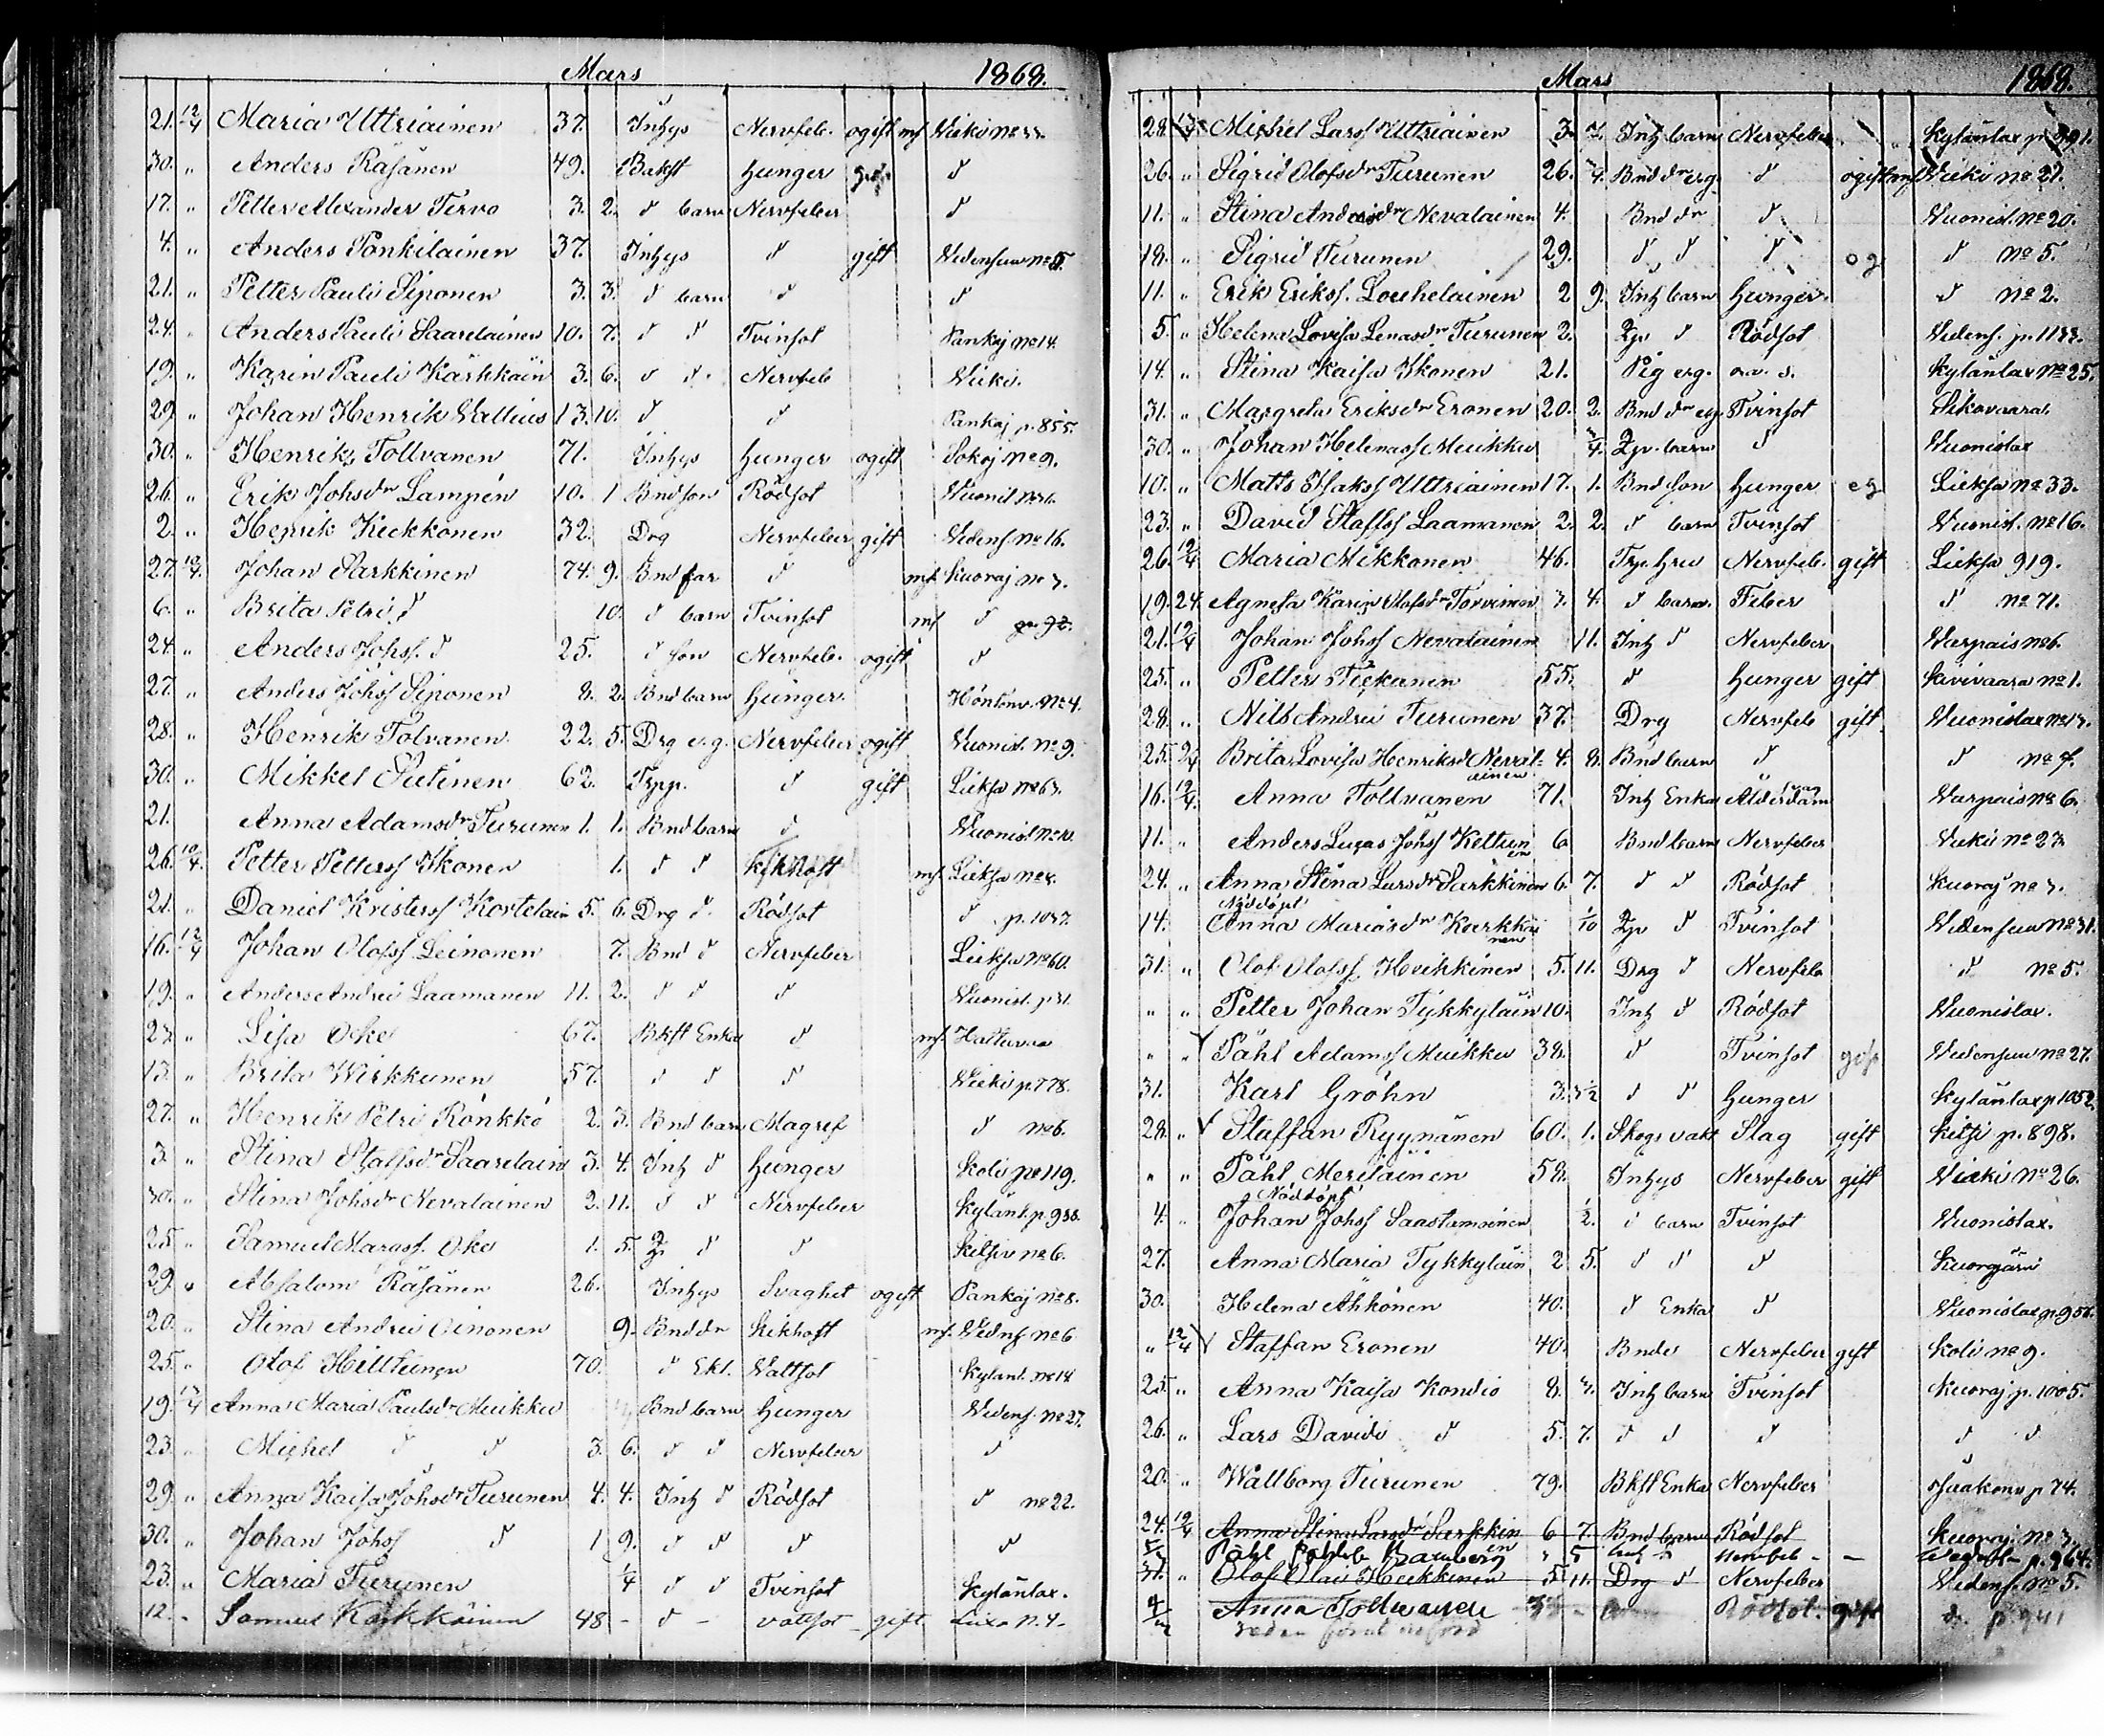 Mars 1868.
21. 12/4 Maria Uttriainen 37. Inhys Nervfeb. ogift mf Vieki no
30. " Anders Räsänen 49. Bakst Hunger d
17. " Petter Alexander Tervo 3. 2. d barn Nervfeber d
4. " Anders Pankilainen 37. Inhys d gift Vidensuu no 5.
21. " Petter Pauli Siponen 3. 3. d barn d d
24. " Anders Pauli Saarelainen 10. 7. d d Tvinsot Pankaj no 14.
19. " Karin Pauli Karkkain 3. 6. d d. Nervfeb Vieki.
29. " Johan Henrik Vallius 13. 10. d d Pankaj p. 855.
30. " Henrik Tollvanen 71. Inhys Hunger ogift Sokoj no 9.
26. " Erik Johsdr Lampén 10. 1 Bndson Rödsot Vuonisl
2. " Henrik Kiekkonen 32. Drg Nervfeber gift Videns no 16.
27. 12/4. Johan Parkkinen 74. 9. Bnd far d mf. Kuoraj no 3.
6. " Brita Petri d 10. d barn Tvinsot mf d
24. " Anders Johss. d 25. d son Nervfeb. ogift d
27. " Anders Johss Siponen 8. 2. Bnd barn Hunger. Höntönv. no 4.
28. " Henrik Tolvanen 22. 5. Drg e.g. Nervfeber ogift Vuonisl. no 9.
30. " Mikkel Putinen 62. Trpp. d gift Lieksa no 63.
21. Anna Adamsdr Turunen 1. 1. Bnd barn d Vuonisl no
26. 12/4. Petter Petterss Ikonen 1. d d Kikhost mf. Lieksa no
21. " Daniel Kristerss Kortelain 5. 6. Drg d. Rödsot d p. 1047.
16. 12/4 Johan Olofss Leinonen 7. Bnd d Nervfeber Lieksa no 60.
19. " Anders Andrei Laamanen 11. 2. d d d Vuonisl. p 31.
23. " Lisa Oke 67. Bkst Enka d mf. Hattuvaa
13. " Brita Wirkkunen 57. d d d Vieki p. 778.
27. " Henrik Petri Rönkkö 2. 3. Bnd barn Magref d no 6.
3. " Stina Stafsdr Saarelain 3. 4. Inh d Hunger Koli p 119.
30. " Stina Johsdr Nevalainen 2. 11. d d Nervfeber Kylänl. p. 938.
25. " Samuel Marass. Oke 1. 5. d d Kitsiv no 6.
29. " Absalom Räsänen 26. Inhys Svaghet ogift Pankaj no 8.
20. " Stina Andrei Oinonen 9. Bnddr Kikhost mf. Vidns no 6
25. " Olof Hilttunen 70. d Ekl. Vattsot Kylänl. no 14
19. 12/4 Anna Maria Paulsdr Muikku Bnd barn Hunger Videns. no 27.
23. " Michel d d 3. 6. d d Nervfeber d
29. " Anna Kaisa Johsdr Turunen 4. 4. Inh d Rödsot d no 22.
30. " Johan Johss d 1 9. d d d d
23. " Maria Turunen 1/4 d d Tvinsot Kylänlax.
12. - Samuel Karkkäinen 48 - d - Vattsot - gift Lixa N. 4.
Mars 1868.
28. Michel Larss Uttriainen 3. 7. Inh barn Nervfeber Kylänlax p. 991.
26. " Sigrid Olofsdr Turunen 26. Bnd dr eg. d ogift mf Vieki no 21.
11. " Stina Andersdr Nevalainen 4. Bnd dr d Vuonisl. no 20.
18. " Sigrid Turunen 29. d d d og d no 5.
11. " Erik Erikss. Louhelainen 2 9. Inh barn Hunger. d no 2.
5. " Helena Lovisa Lenasdr Turunen 2. d Rödsot Videns. p. 1133.
14. " Stina Kaisa Ikonen 21. Pig eg. Kylänlax no 25.
31. " Margreta Eriksdr Eronen 20. 2. Bnd dr eg. Tvinsot Sikovaara.
30. " Johan Helenass Muikku barn d Vuonislax
10. " Matts Isakss Uttriainen 17. 1. Bnd son Hunger eg Lieksa no 33.
23. " David Staffss Laamanen 2. 2. d barn Tvinsot Vuonisl. no 16.
26. 12/4 Maria Mikkonen 46. Trp. Hru Nervfeb. gift Lieksa 919.
19. 24. Agnesa Karin Olofsdr Torvinen 3. 4. d barn. Feber d no 71.
21. 12/4 Johan Johss Nevalainen 11. Inh d Nervfeber Varpais no 6.
25. " Petter Tiekanen 55. d Hunger gift Kivivaara no 1.
28. " Nils Andrei Turunen 37. Drg Nervfeb gift. Vuonislax no 13.
25. Brita Lovisa Henriksd Nevalainen 4. 8. Bnd barn d d no 7.
16. 12/4. Anna Tollvanen 71. Inh Enka Ålderdom Varpais no 6.
11. " Anders Lucas Johss Kettunen 6 Bnd barn Nervfeber Vieki no 23
24. " Anna Stina Larsdr Sarkkinen 6. 7. d d Rödsot Kuoraj no 3.
Nöddöpt
14. Anna Mariasdr Karkkainen 1/10 d Tvinsot Vidensuu no 31.
31. " Olof Olofss. Heikkinen 5. 11. Drg d Nervfeb d no 5.
" " Petter Johan Tykkyläin 10. Inh d Rödsot Vuonislax.
" " Påhl Adamss Muikku 38. d Tvinsot gift Vidensuu no 27.
31. Karl Gröhn 3. 3 1/2 d d Hunger Kylänlax p 1052.
28. " Staffan Ryynänen 60. 1. Skogsvakt Slag gift Kitsi p. 898.
" " Påhl Meriläinen 58. Inhys Nervfeber gift Vieki No 26.
Nöddöpt
4. " Johan Johss Saastamoinen 1/2. d barn Tvinsot Vuonislax.
27. Anna Maria Tykkyläin 2 5. d d d Kuorajärvi
30. Helena Ahkönen 40. d Enka d Vuonislax p. 956.
" 12/4 Staffan Eronen 40. Bnde Nervfeber gift Koli no 9.
25. " Anna Kaisa Kondio 8. Inh barn Tvinsot Kuoraj p. 1005.
26. " Lars Davids d 5. 7. d d d d d
20. " Wallborg Turunen 79. Bkst Enka Nervfeber Juakonv p 74.
24. 12/4 Anna Stina Larsdr Sarkkinen 6 7. Bnd barn Rödsot Kuoraj no 3.
Påhl 5 Nervfeb - - p. 964.
31. " Olof Olai Heikkinen 5 11. Drg d Nervfeber Videns. No 5.
Anna Tollwanen Rödsot. gift d. p. 941